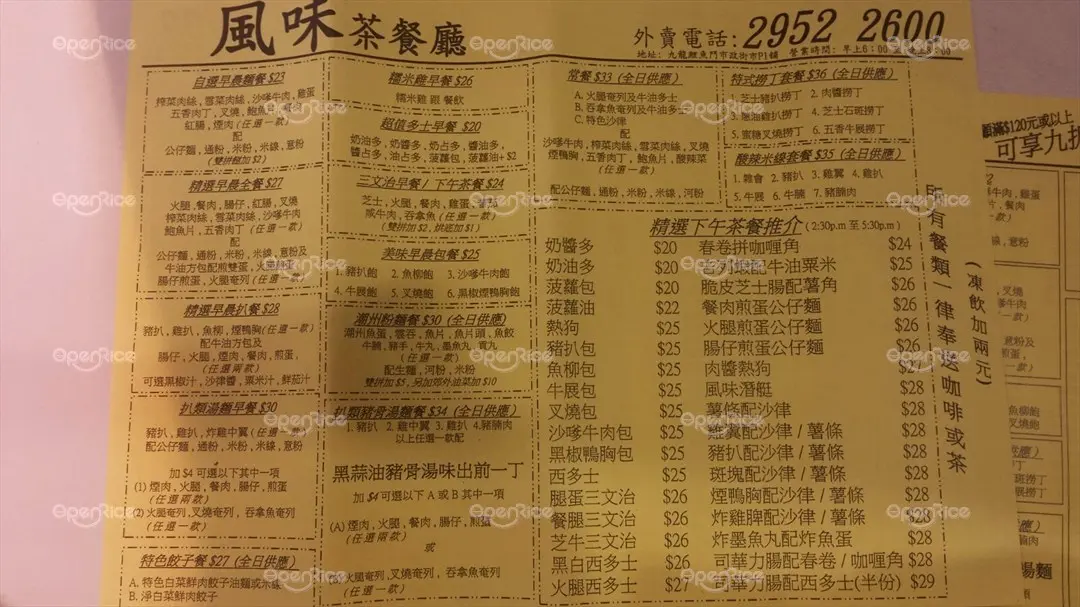 風味茶餐廳
外賣電話:2952 2600
地址:九龍鯉魚門市政街市P1鋪 營業時間:早上6:00
自選早晨麵餐 $23
榨菜肉絲,雪菜肉絲,沙嗲牛肉,雞蛋
五香肉丁,叉燒,鮑魚片
紅腸,煙肉(任選一款)
配
公仔麵,通粉,米粉,米線,意粉
(雙拼麵加 $2)
精選早晨全餐 $27
火腿,餐肉,腸仔,紅腸,叉燒
榨菜肉絲,雪菜肉絲,沙嗲牛肉
鮑魚片,五香肉丁(任選一款)
配
公仔麵,通粉,米粉,米線,意粉及
牛油方包配煎雙蛋,火腿煎蛋
腸仔煎蛋,火腿奄列(任選一款)
精選早晨扒餐 $28
豬扒,雞扒,魚柳,煙鴨胸(任選一款)
配牛油方包及
腸仔,火腿,煙肉,餐肉,煎蛋,
(任選兩款)
可選黑椒汁,沙律醬,粟米汁,鮮茄汁
扒類湯麵早餐 $30
豬扒,雞扒,炸雞中翼(任選一款)
配公仔麵,通粉,米粉,米線,意粉
加 $4 可選以下其中一項
(1) 煙肉,火腿,餐肉,腸仔,煎蛋
(任選兩款)
(2) 火腿奄列,叉燒奄列,吞拿魚奄列
(任選一款)
特色餃子餐 $27 (全日供應)
A. 特色白菜鮮肉餃子油麵或米線
B. 淨白菜鮮肉餃子
糯米雞早餐 $26
糯米雞 跟 餐飲
超值多士早餐 $20
奶油多,奶醬多,奶占多,醬油多,
醬占多,油占多,菠蘿包,菠蘿油+ $2
三文治早餐 / 下午茶餐 $24
芝士,火腿,餐肉,雞蛋
咸牛肉,吞拿魚(任選一款)
(雙拼加 $2, 烘底加 $1)
美味早晨包餐 $25
1. 豬扒飽 2. 魚柳飽 3. 沙嗲牛肉飽
4. 牛展飽 5. 叉燒飽 6. 黑椒煙鴨胸飽
潮州粉麵餐 $30 (全日供應)
潮州魚蛋,雲吞,魚片,魚片頭,魚餃
牛腩,豬手,牛丸,墨魚丸,貢丸
(任選一款)
配生麵,河粉,米粉
雙拼加 $5,另加郊外油菜加 $10
扒類豬骨湯麵餐 $34 (全日供應)
1. 豬扒 2. 雞中翼 3. 雞扒 4.豬腩肉
以上任選一款配
黑蒜油豬骨湯味出前一丁
加 $4 可選以下 A 或 B 其中一項
(A) 煙肉,火腿,餐肉,腸仔,煎蛋
(任選兩款)
或
火腿奄列,叉燒奄列,吞拿魚奄列
(任選一款)
常餐 $33 (全日供應)
A. 火腿奄列及牛油多士
B. 吞拿魚奄列及牛油多士
C. 特色沙律
配
沙嗲牛肉,榨菜肉絲,雪菜肉絲,叉燒
煙鴨胸,五香肉丁,鮑魚片,酸辣菜
(任選一款)
配公仔麵,通粉,米粉,米線,河粉
特式撈丁套餐 $36 (全日供應)
1. 芝士豬扒撈丁 2. 肉醬撈丁
3. 蔥油雞扒撈丁 4. 芝士石斑撈丁
5. 蜜糖叉燒撈丁 6. 五香牛展撈丁
酸辣米線套餐 $35 (全日供應)
1. 雜會 2. 豬扒 3. 雞翼 4. 雞扒
5. 牛展 6. 牛腩 7. 豬腩肉
精選下午茶餐推介 (2:30p.m 至 5:30p.m)
奶醬多 $20
奶油多 $20
菠蘿包 $20
菠蘿油 $22
熱狗 $25
豬扒包 $25
魚柳包 $25
牛展包 $25
叉燒包 $25
沙嗲牛肉包 $25
黑椒鴨胸包 $25
西多士 $25
腿蛋三文治 $26
餐腿三文治 $26
芝牛三文治 $26
黑白西多士 $26
火腿西多士 $27
春卷拼咖喱角 $24
芭列蝦配牛油粟米 $25
脆皮芝士腸配薯角 $26
餐肉煎蛋公仔麵 $26
火腿煎蛋公仔麵 $26
腸仔煎蛋公仔麵 $26
肉醬熱狗 $27
風味潛艇 $28
薯條配沙律 $28
雞翼配沙律 / 薯條 $28
豬扒配沙律 / 薯條 $28
斑塊配沙律 / 薯條 $28
煙鴨胸配沙律 / 薯條 $28
炸雞脾配沙律 / 薯條 $28
炸墨魚丸配炸魚蛋 $28
司華力腸配春卷 / 咖喱角 $28
司華力腸配西多士(半份) $29
所有餐類一律奉送咖啡或茶
(凍飲加兩元)
滿$120元或以上
可享九折
OpenRice